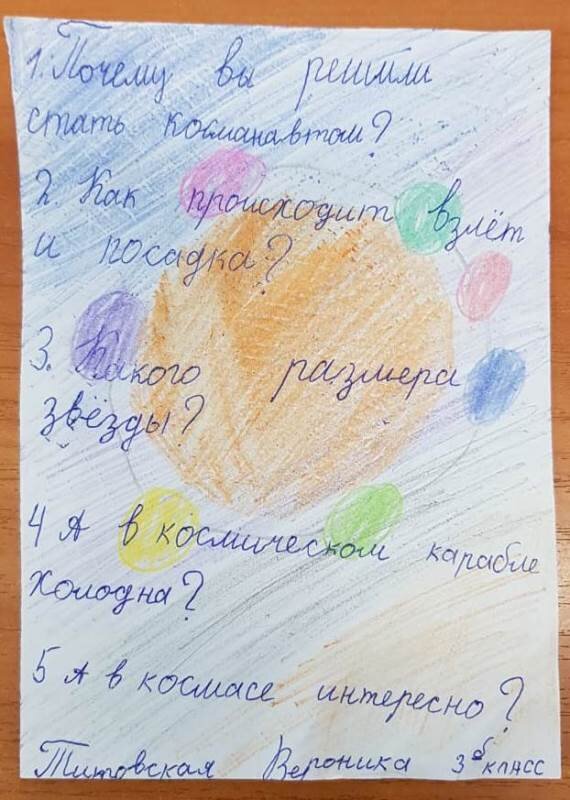 1. Почему вы решили
стать косманавтом?
2. Как происходит взлёт
и посадка?
3. Какого размера
звёзды?
4 А в космическом карабле
холодна?
5 А в космасе интересно?
Титовская Вероника 3б класс